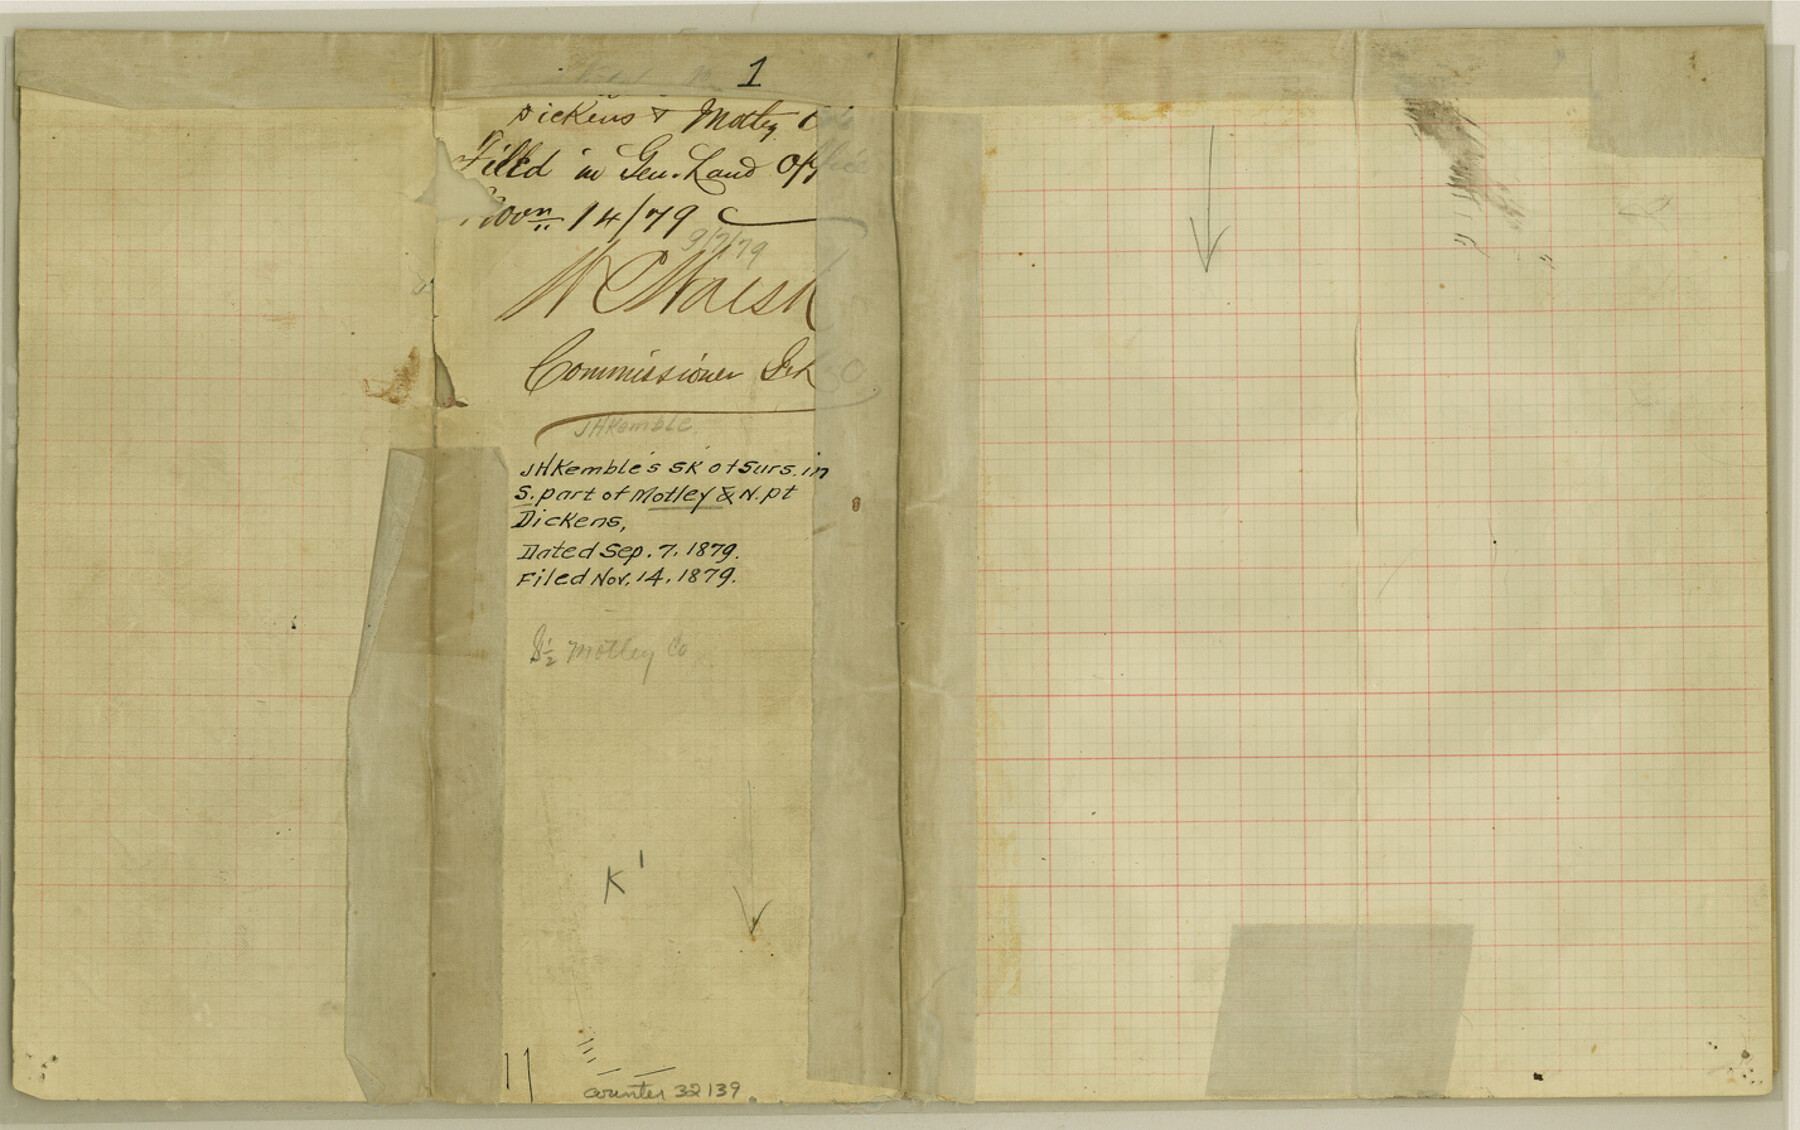 1
Dickens & Motley
Filed in Gen. Land Office
Novn 14/79
9/7/79
W C Walsh
Commissioner
JHKemble.
JHKemble's SK of Surs. in
S. part of Motley & N. pt
Dickens,
Dated Sep. 7, 1879.
Filed Nov. 14, 1879.
S½ Motley Co
K 1
11
counter 32139